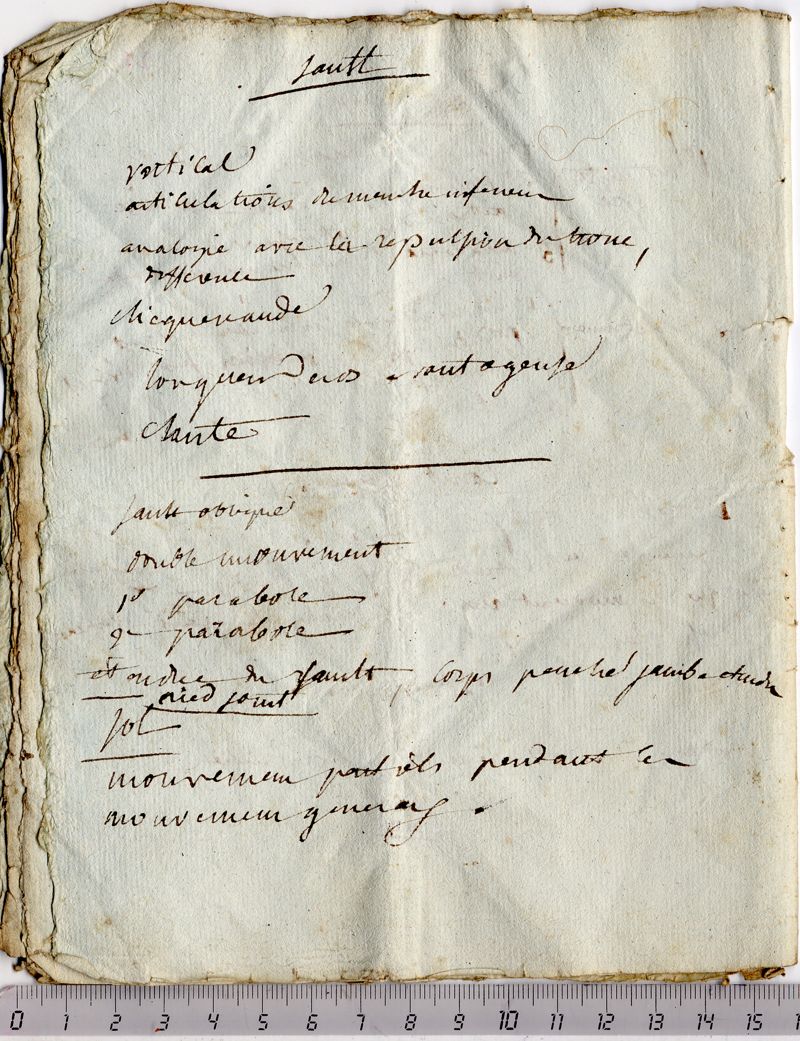 sault
vertical
articulations du membre inferieur
analogie avec la repulsion du tronc,
difference
longueur des os avantageuse
chute
sault oblique
double mouvement
1e parabole
2e parabole
etendue du sault, corps penché jambe etendu
pied joint
sol
mouvemen partiels pendant le
mouvemen general.
0 1 2 3 4 5 6 7 8 9 10 11 12 13 14 15 1